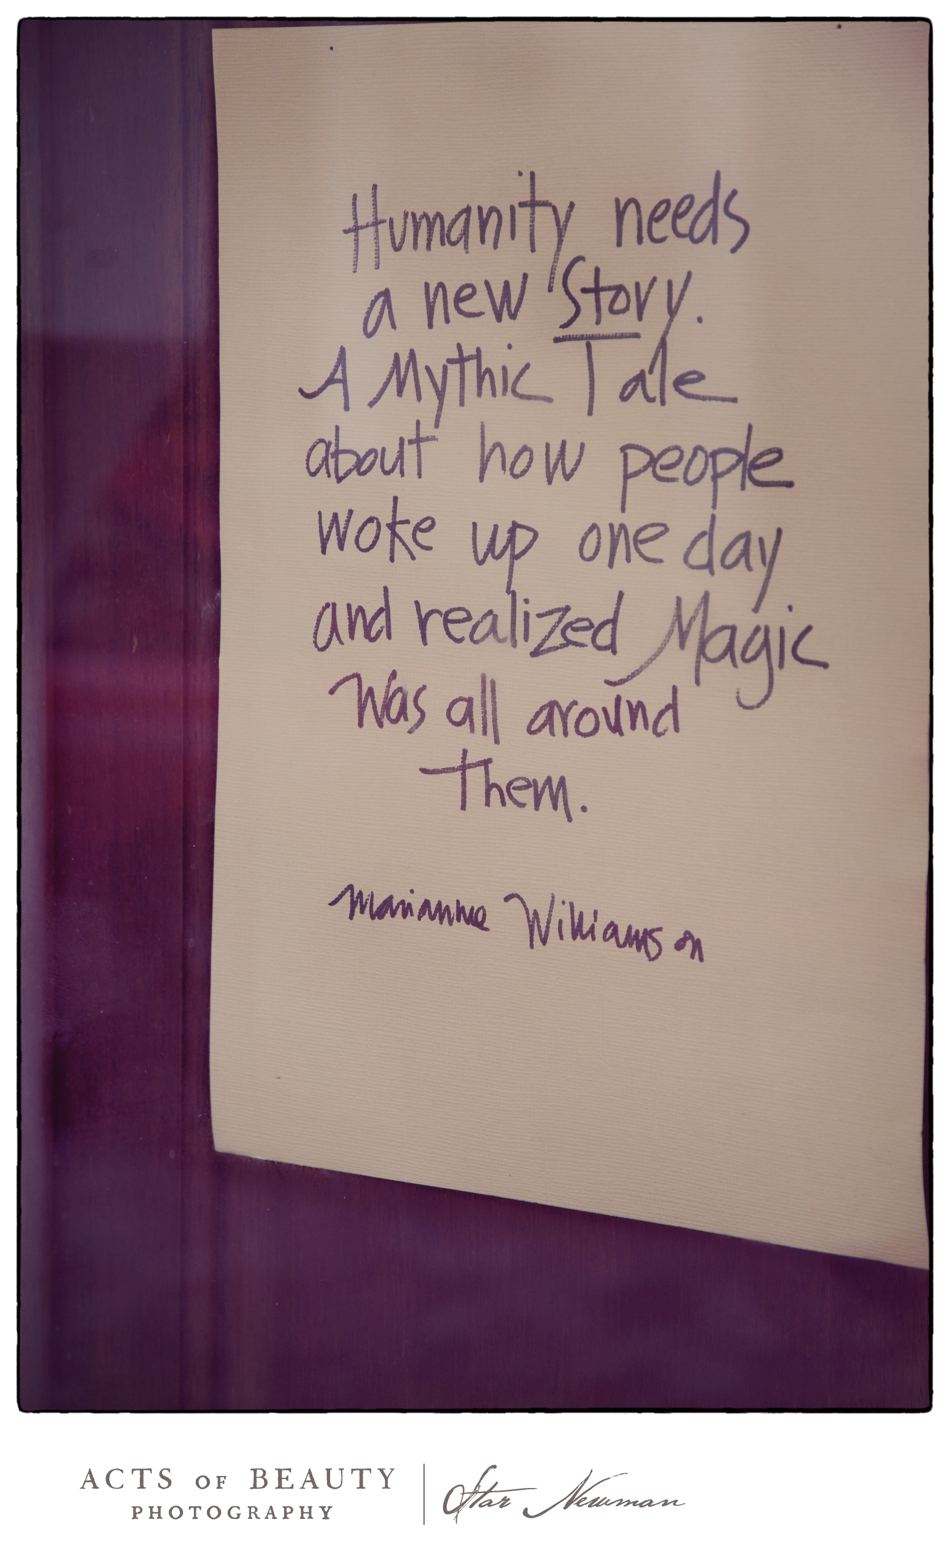 Humanity needs
a new Story.
A Mythic Tale
about how people
woke up one day
and realized Magic
Was all around
them.
Marianne Williamson
ACTS OF BEAUTY
PHOTOGRAPHY
Star Newman